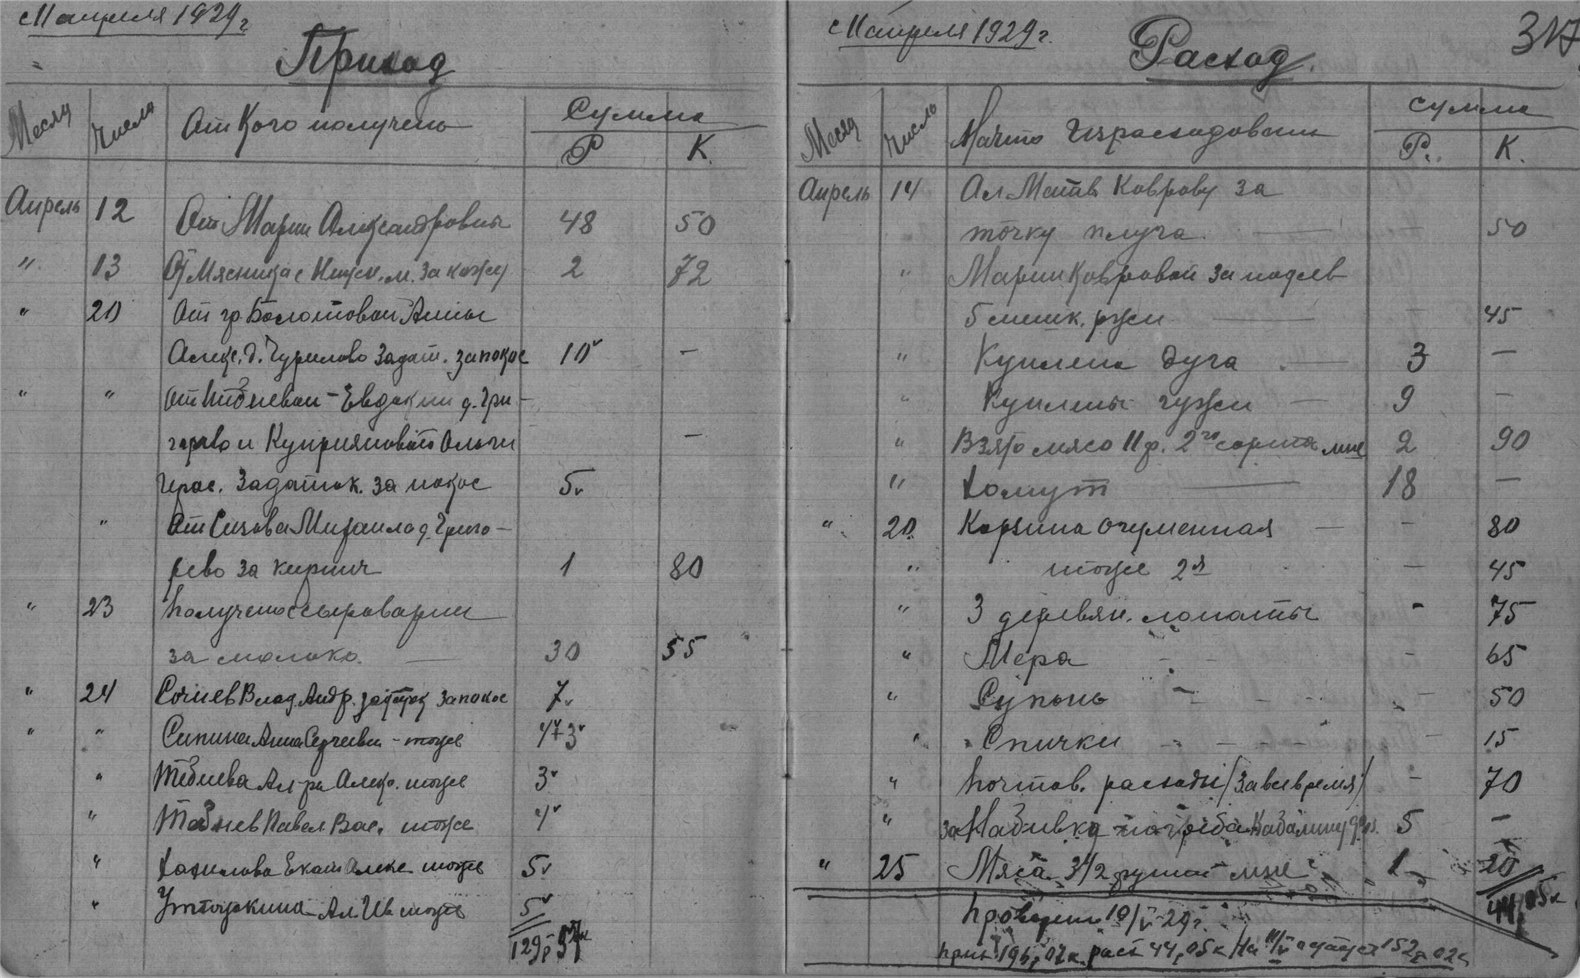 с 11 апреля 1929 г.
Приход
Месяц Числа От Кого получено Сумма
Р К.
Апрель 12 От Марии Александровны 48 50
" 13 От Мясника с за кожу 2 72
" 20 От гр. Болотовой Анны
Алекс. д. Чурилово Задат. за покос 10 —
" " От Евдокии д. Гри-
горово и Куприяновой Ольги —
Герас. Задаток. за покос 5
" От Сизова Михаила д. Григо-
рево за кирпич 1 80
" 23 Получено с сыроварни
за молоко. — 30 55
" 24 Влад. Андр. задаток за покос 7
" " Анна Сергеевна - тоже 3
" Ал-ра Алекс. тоже 3
" Павел Вас. тоже 4
" Екат Алекс тоже 5
" Ал Ив тоже 5
129р 57к
с 11 апреля 1929 г.
Расход
317
Месяц Число На что Израсходовано сумма
Р. К.
Апрель 14 Ал Матв. Коврову за
точку плуга — 50
" Марии Ковровой за подев
5 мешк. ржи — — 45
" Куплена дуга — 3 —
" Куплены гужи — 9 —
" Взято мясо 11 ф. 2го сорта мне 2 90
" Хомут — 18 —
" 20 Корзина — - 80
" тоже 2я — 45
" 3 деревян. лопаты - 75
" Мера - - - 65
" Супонь - - - - 50
" Спички - - - - - 15
" Почтов. расходы (за все время) - 70
" за Набивку погреба 5 —
" 25 Мяса 3 1/2 мне 1 20
44р 05к
Проверено 10/V-29 г.
прих 196р 07к расх 44р, 05к На 11/V остаток 152р 02к